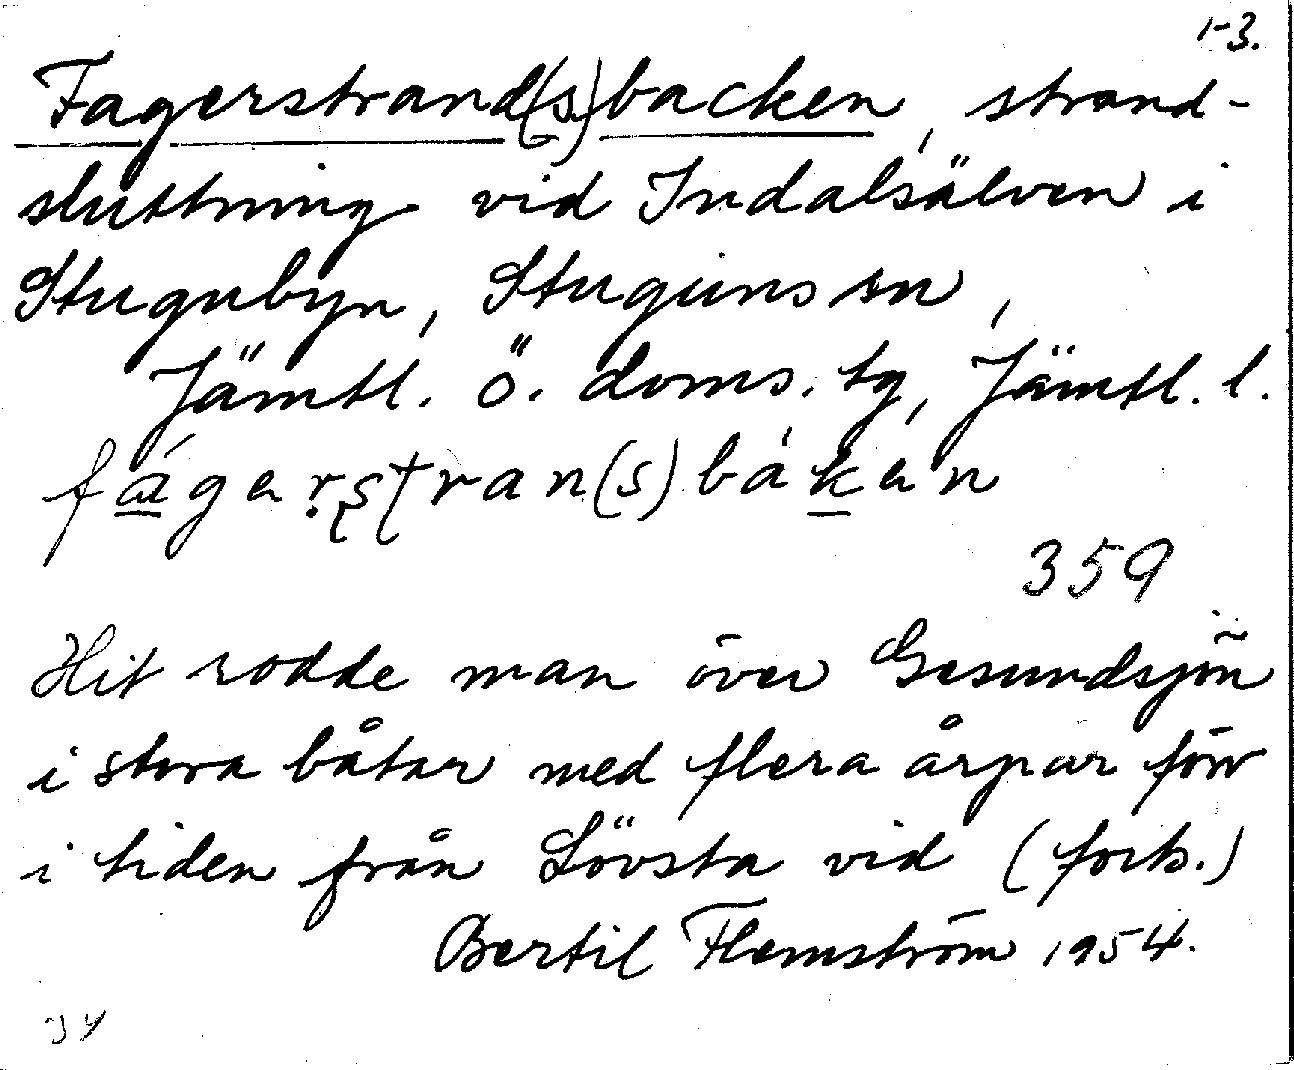 1-3.
Fagerstrand(s)backen, strand-
sluttning vid Indalsälven i
Stugubyn, Stuguns sn,
Jämtl. ö. doms. tg, Jämtl. l.
fágerstran(s)bákan
359
Hit rodde man över Gesundsjön
i stora båtar med flera årpar förr
i tiden från Lövsta vid (forts.)
Bertil Flemström 1954.